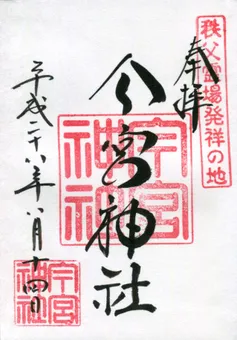 秩父霊場発祥の地
奉拝
今宮神社
今宮神社
平成二十八年八月十四日
今宮神社